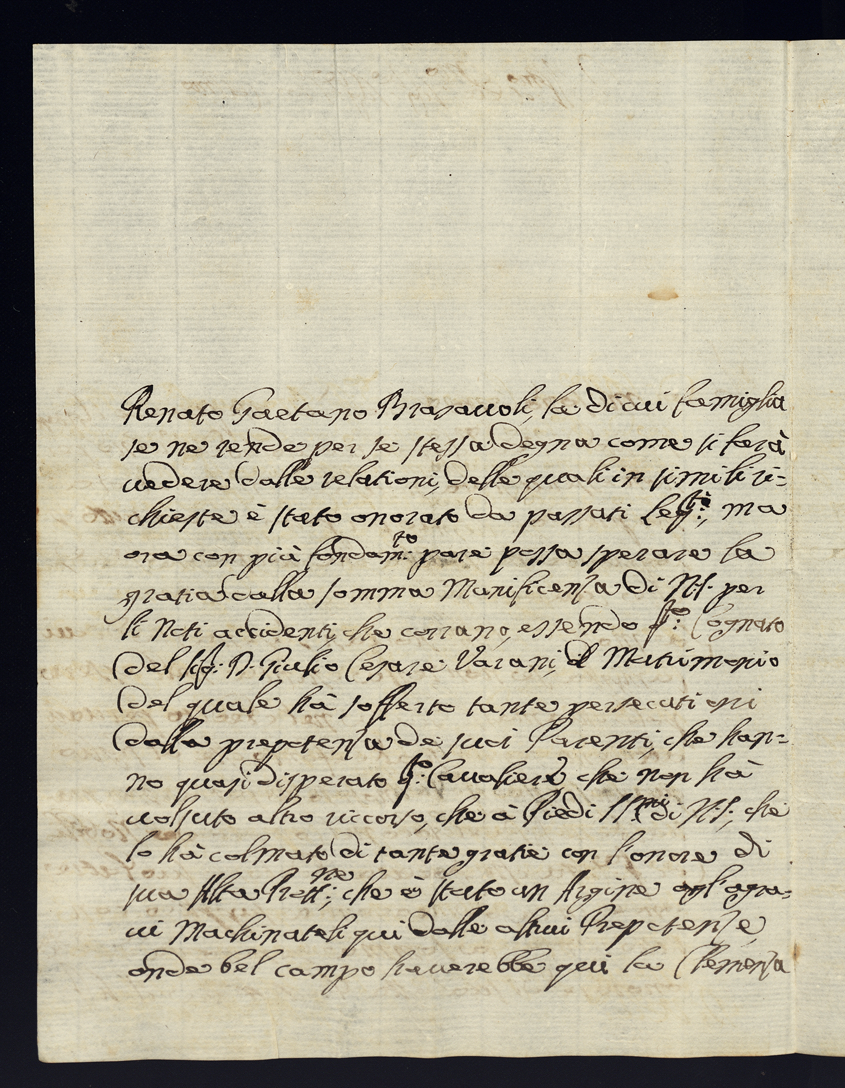 Renato Gaetano Brasauoli, la di cui famiglia
se ne rende per se stessa degna come si farà
uedere dalle relationi, delle quali in simili ri=
chieste è stato onorato da passati Leg:ti, ma
ora con più fondam:to pare possa sperare la
gratia dalla somma Munificenza di N:S: per
li Noti accidenti, che corrano, essendo Cognato
del Sig: D: Giulio Cesare Varani, il Matrimonio
del quale hà sofferto tante persecutioni
dalla prepotenza de suoi Parenti, che han=
no quasi disperato q:to Caualiere che non hà
uolsuto altro riccorso, che à Piedi SS:mi di N:S:, che
lo hà colmato di tante gratie con l'onore di
sua Alta Prott:ne, che è stato un Argine agl'agra=
ui Machinateli qui dalle altrui Prepotenze
onde bel campo hauerebbe qui la Clemenza